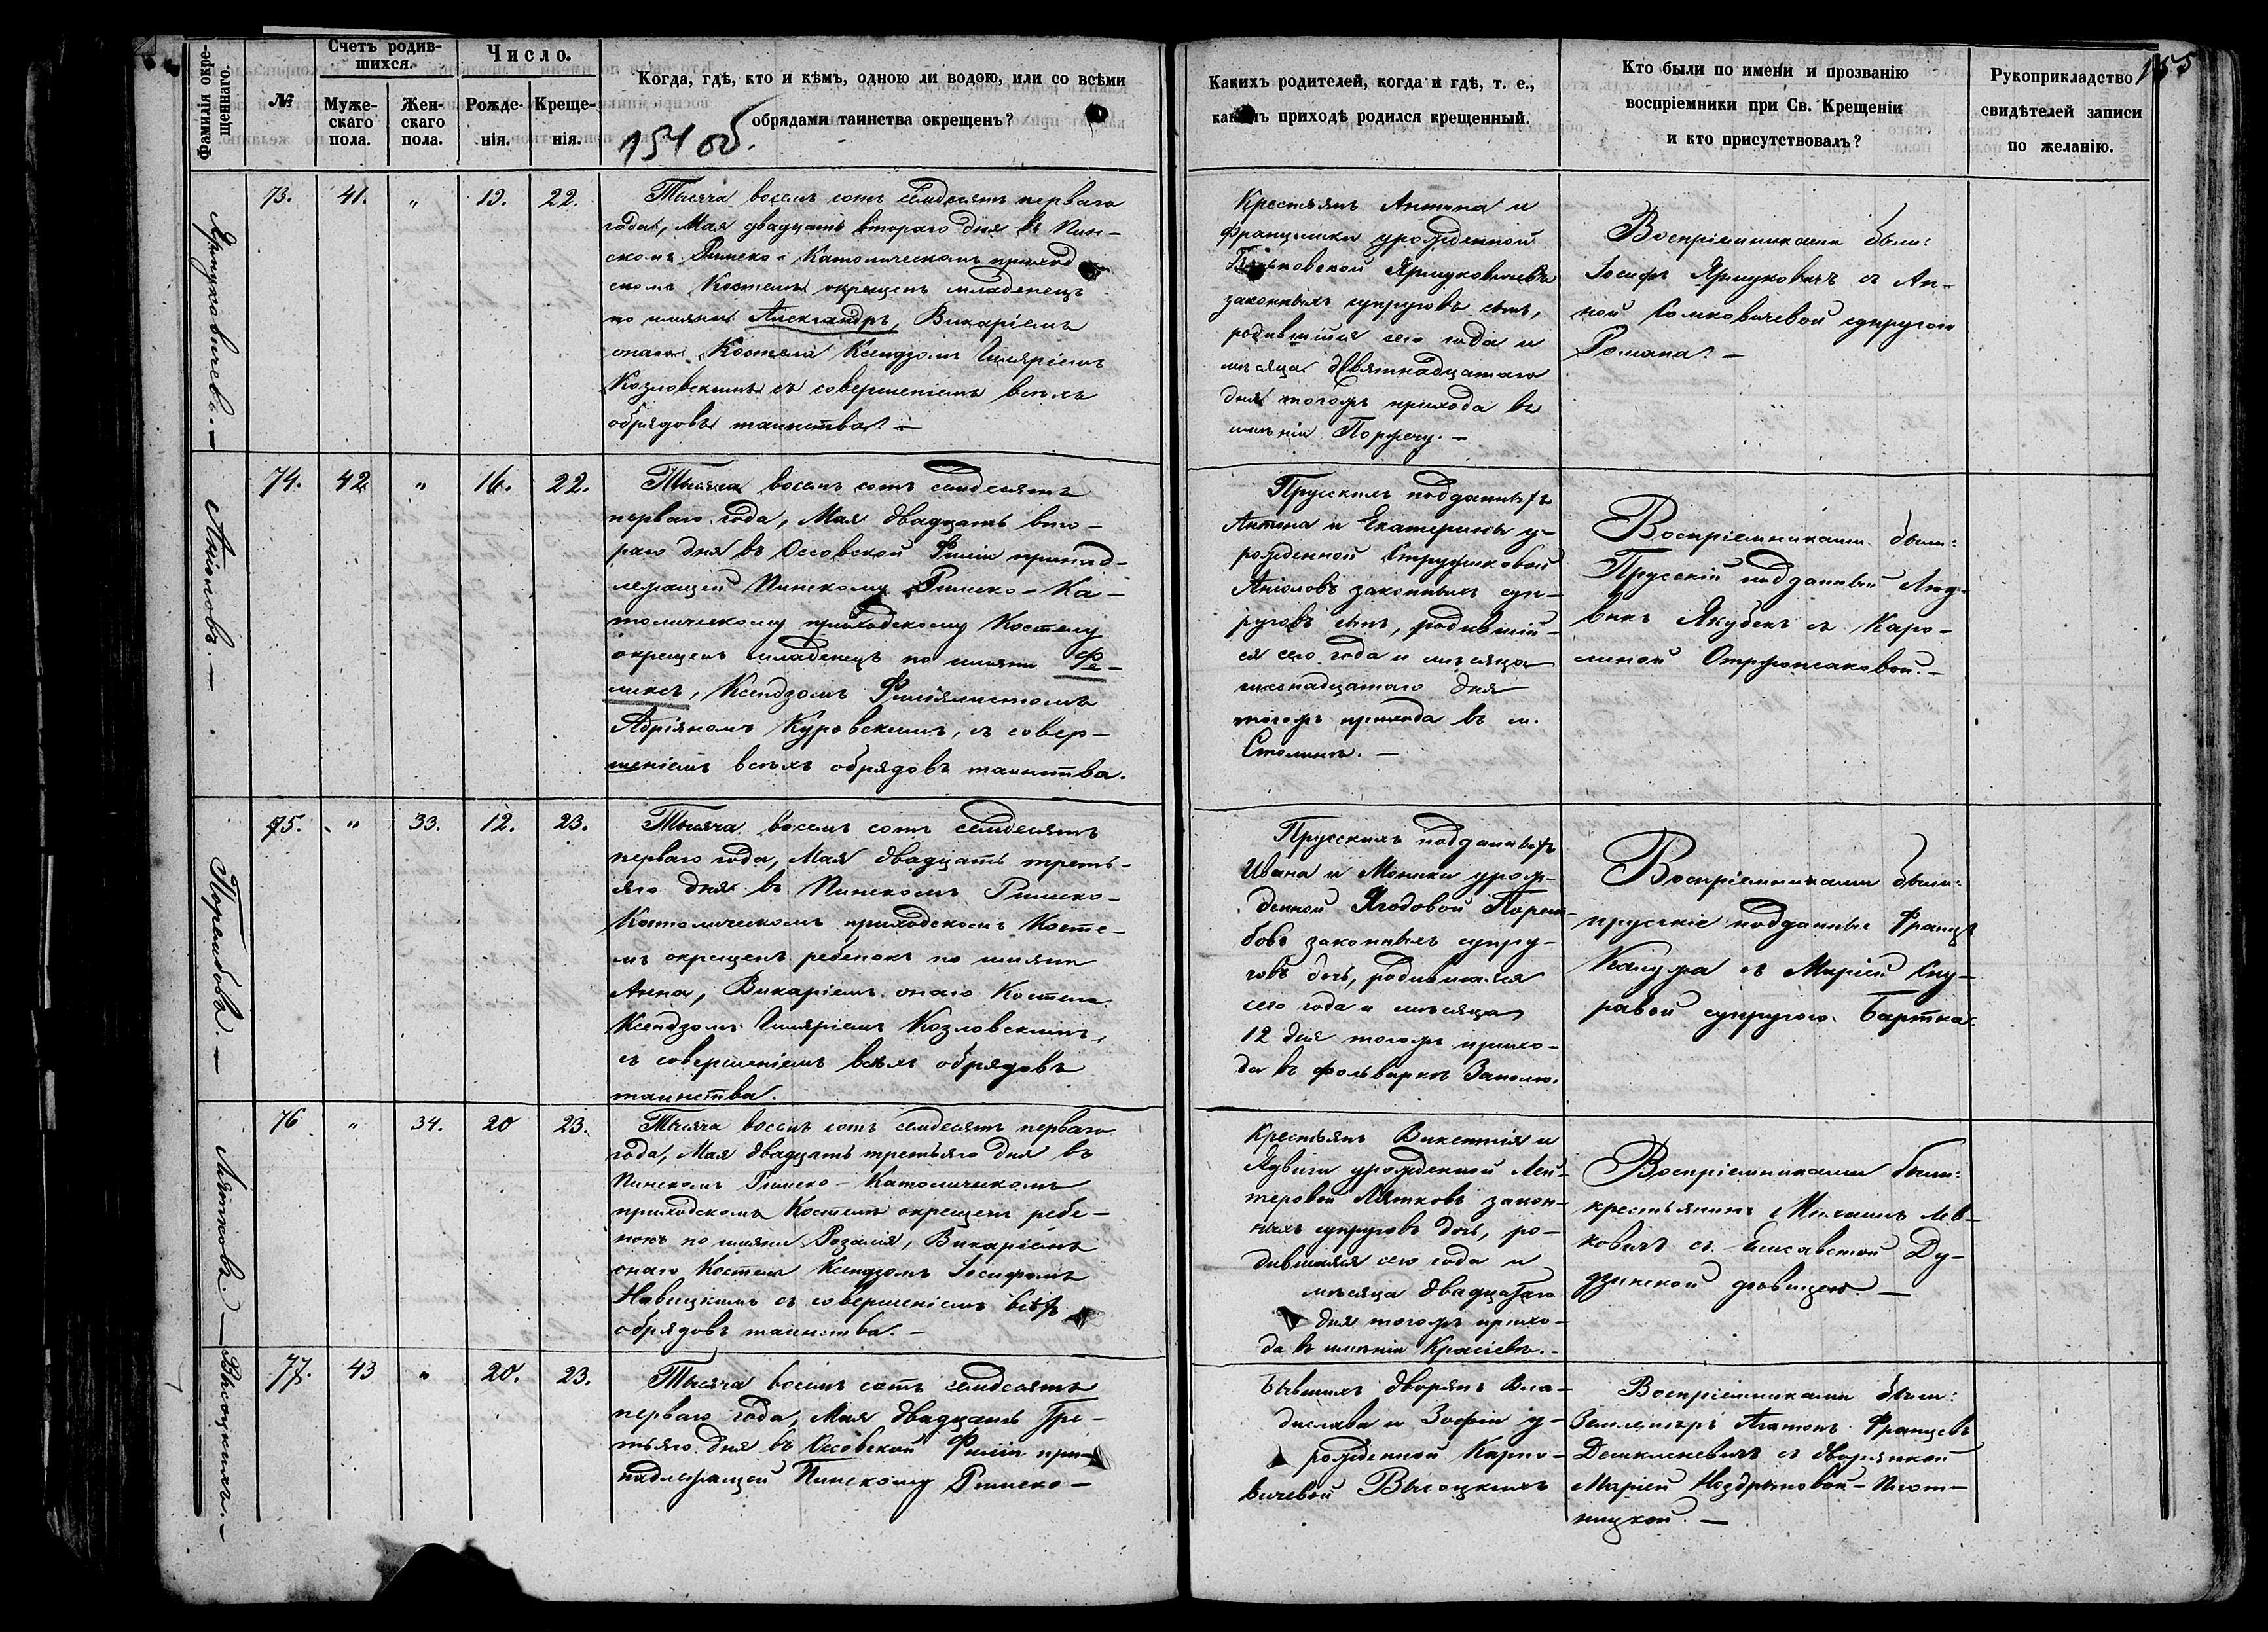 155
154 об.
Фамилія окре-
щеннаго.
№
Счетъ родив-
шихся.
Муже-
скаго
пола.
Жен-
скаго
пола.
Число.
Рожде-
нія.
Креще-
нія.
Когда, гдѣ, кто и кѣмъ, одною ли водою, или со всѣми
обрядами таинства окрещенъ?
Какихъ родителей, когда и гдѣ, т. е.,
приходѣ родился крещенный.
Кто были по имени и прозванію
воспріемники при Св. Крещеніи
и кто присутствовалъ?
Рукоприкладство
свидѣтелей записи
по желанію.
Ярмуковичевъ. —
73. 41. " 19. 22.
Тысяча восемь сотъ семдесятъ перваго
года, Мая двадцать втораго дня въ Пин-
скомъ Римско-Католическомъ приход
скомъ Костелѣ окрещенъ младенецъ
по имяни Александръ, Викаріемъ
онаго Костела Ксендзомъ Гиляріемъ
Козловскимъ съ совершеніемъ всѣхъ
обрядовъ таинства. —
Крестьянъ Антона и
Францишки урожденной
Ярмуковичевъ
законныхъ супруговъ сынъ,
родившійся сего года и
мѣсяца девятнадцатаго
дня тогожъ прихода въ
имѣніи Порѣчу. —
Воспріемниками были:
Іосифъ Ярмуковичъ съ Ан-
ной Сомковичевой супругою
Романа. —
Аніоловъ. —
74. 42 " 16. 22.
Тысяча восемь сотъ семдесятъ
перваго года, Мая двадцать вто-
раго дня въ Оссовской Филіи принад-
лежащей Пинскому Римско-Ка-
толическому приходскому Костелу
окрещенъ младенецъ по имяни Фе-
ликсъ, Ксендзомъ Филіялистомъ
Адріяномъ Куровскимъ, съ совер-
шеніемъ всѣхъ обрядовъ таинства.
Прусскихъ подданныхъ
Антона и Екатерины у-
рожденной Стружиковой
Аніоловъ законныхъ суп-
руговъ сынъ, родившій-
ся сего года и мѣсяца
шеснадцатаго дня
тогожъ прихода въ м.
Столинѣ. —
Воспріемниками были:
Прусскій подданный Люд-
викъ Якубекъ съ Каро-
линой
Порембовъ. —
75. " 33. 12. 23.
Тысяча восемь сотъ семдесятъ
перваго года, Мая двадцать треть-
яго дня въ Пинскомъ Римско-
Католическомъ приходскомъ Косте-
лѣ окрещенъ ребенокъ по имяни
Анна, Викаріемъ онаго Костела
Ксендзомъ Гиляріемъ Козловскимъ,
съ совершеніемъ всѣхъ обрядовъ
таинства.
Прусскихъ подданныхъ
Ивана и Моники урож-
денной Ягодовой Порем-
бовъ законныхъ супру-
говъ дочь, родившаяся
сего года и мѣсяца
12 дня тогожъ прихо-
да въ фольваркѣ
Воспріемниками были:
прусскіе подданные Францъ
Канужа съ Маріей Ску-
равой супругою Бартка.
Лятковъ. —
76 " 34. 20 23.
Тысяча восемь сотъ семдесятъ перваго
года, Мая двадцать третьяго дня въ
Пинскомъ Римско-Католическомъ
приходскомъ Костелѣ окрещенъ ребе-
нокъ по имяни Розалія, Викаріемъ
онаго Костела Ксендзомъ Іосифомъ
Новицкимъ съ совершеніемъ всѣхъ
обрядовъ таинства. —
Крестьянъ Викентія и
Ядвиги урожденной Лей-
теровой Лятковъ закон-
ныхъ супруговъ дочь, ро-
дившаяся сего года и
мѣсяца двадцатаго
дня тогожъ прихо-
да въ имѣніи Красіевѣ. —
Воспріемниками были:
крестьянинъ Михаилъ Лев-
ковичъ съ Елисаветой Ду-
дзинской дѣвицею. —
Высоцкихъ. —
77. 43 " 20. 23.
Тысяча восемь сотъ семдесятъ
перваго года, Мая двадцать тре-
тьяго дня въ Оссовской Филіи при-
надлежащей Пинскому Римско-
Бывшихъ дворянъ Вла-
дислава и Зофіи у-
рожденной Карпо-
вичевой Высоцкихъ
Воспріемниками были:
Землемѣръ Агатонъ Францевъ
съ дворянкой
Маріей Ноздрыновой-Плот-
ницкой. —